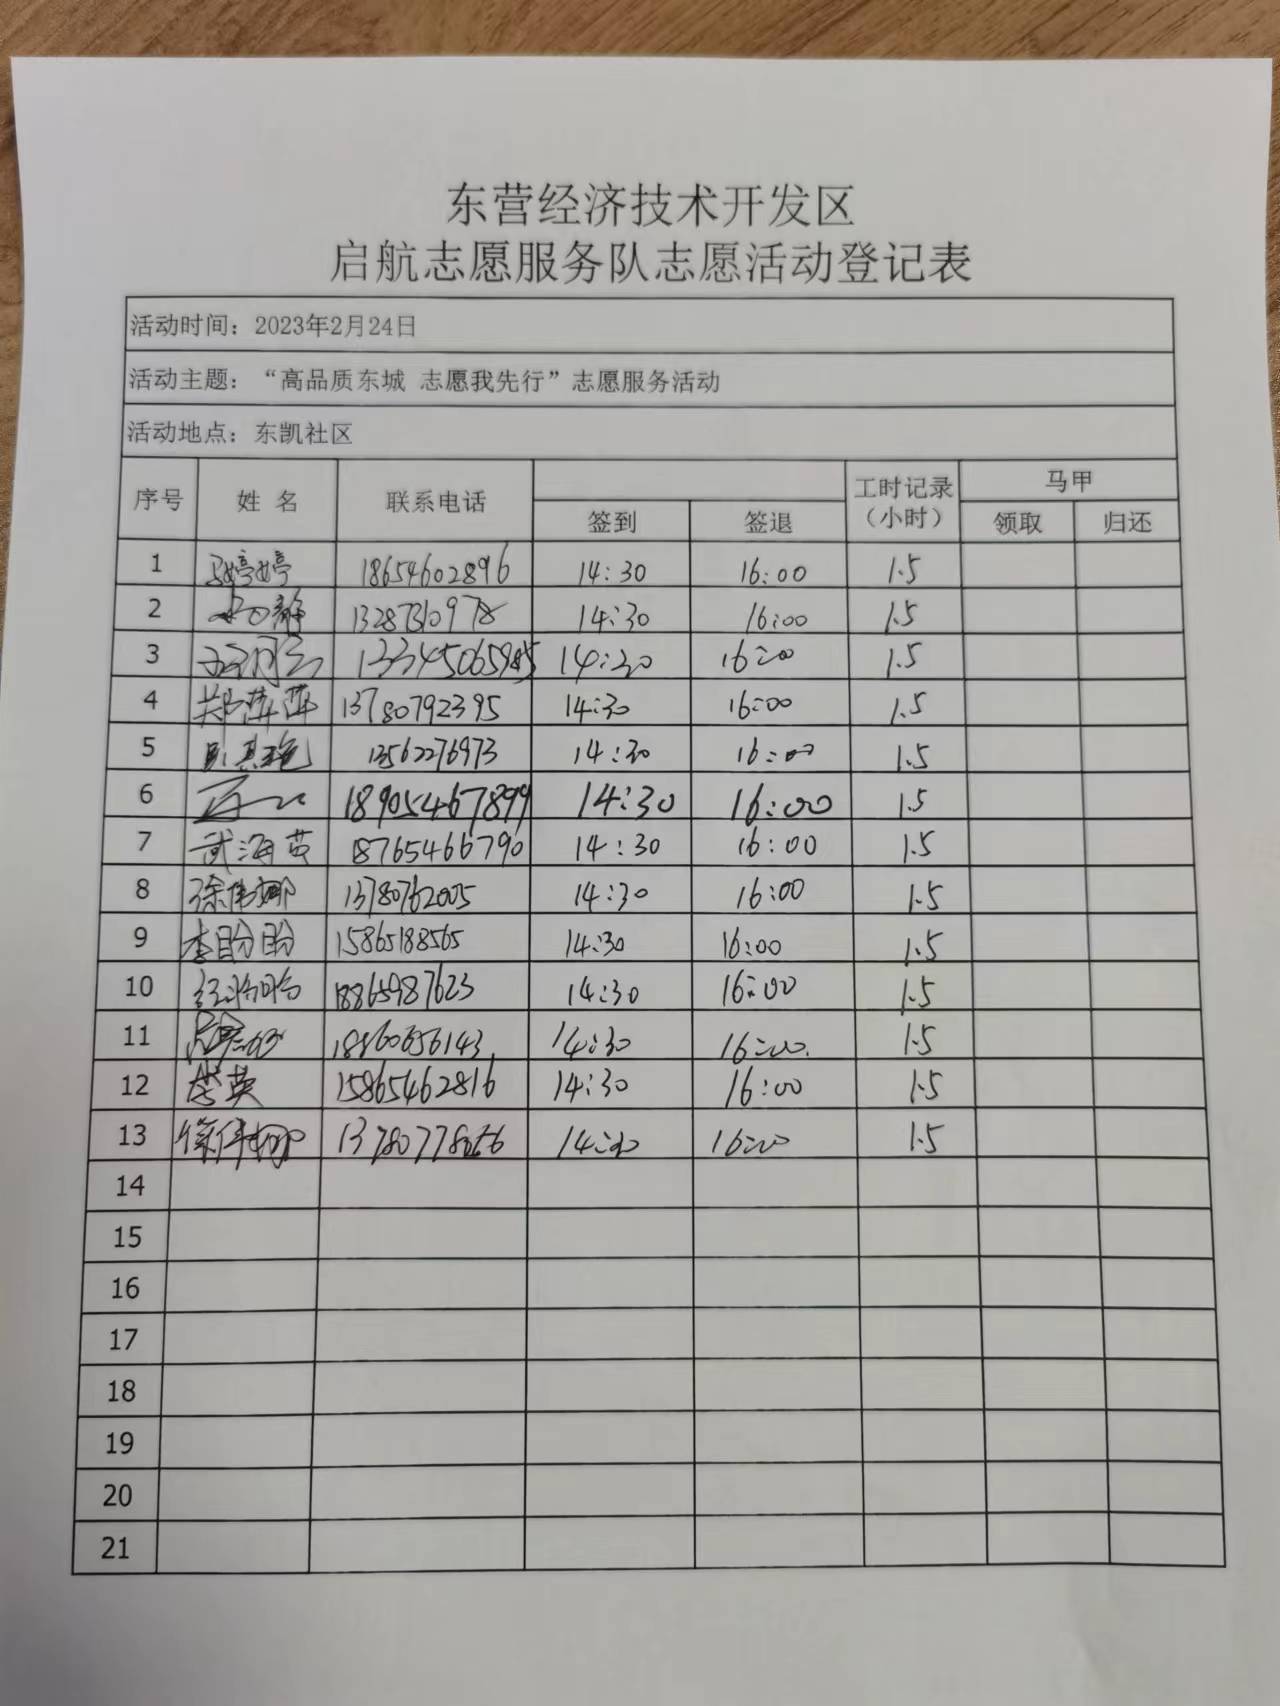 东营经济技术开发区
启航志愿服务队志愿活动登记表
活动时间：2023年2月24日
活动主题：“高品质东城 志愿我先行”志愿服务活动
活动地点：东凯社区
序号 姓 名 联系电话 签到 签退 工时记录（小时） 马甲 领取 归还
1 马婷婷 18654602896 14:30 16:00 1.5
2 13287310978 14:30 16:00 1.5
3 14:30 16:00 1.5
4 郑萍萍 13780792395 14:30 16:00 1.5
5 13562276973 14:30 16:00 1.5
6 18905467899 14:30 16:00 1.5
7 武海英 18765466790 14:30 16:00 1.5
8 徐伟娜 13780762005 14:30 16:00 1.5
9 李盼盼 15865188565 14:30 16:00 1.5
10 18865987623 14:30 16:00 1.5
11 18860656143 14:30 16:00 1.5
12 15865462816 14:30 16:00 1.5
13 14:30 16:00 1.5
14
15
16
17
18
19
20
21